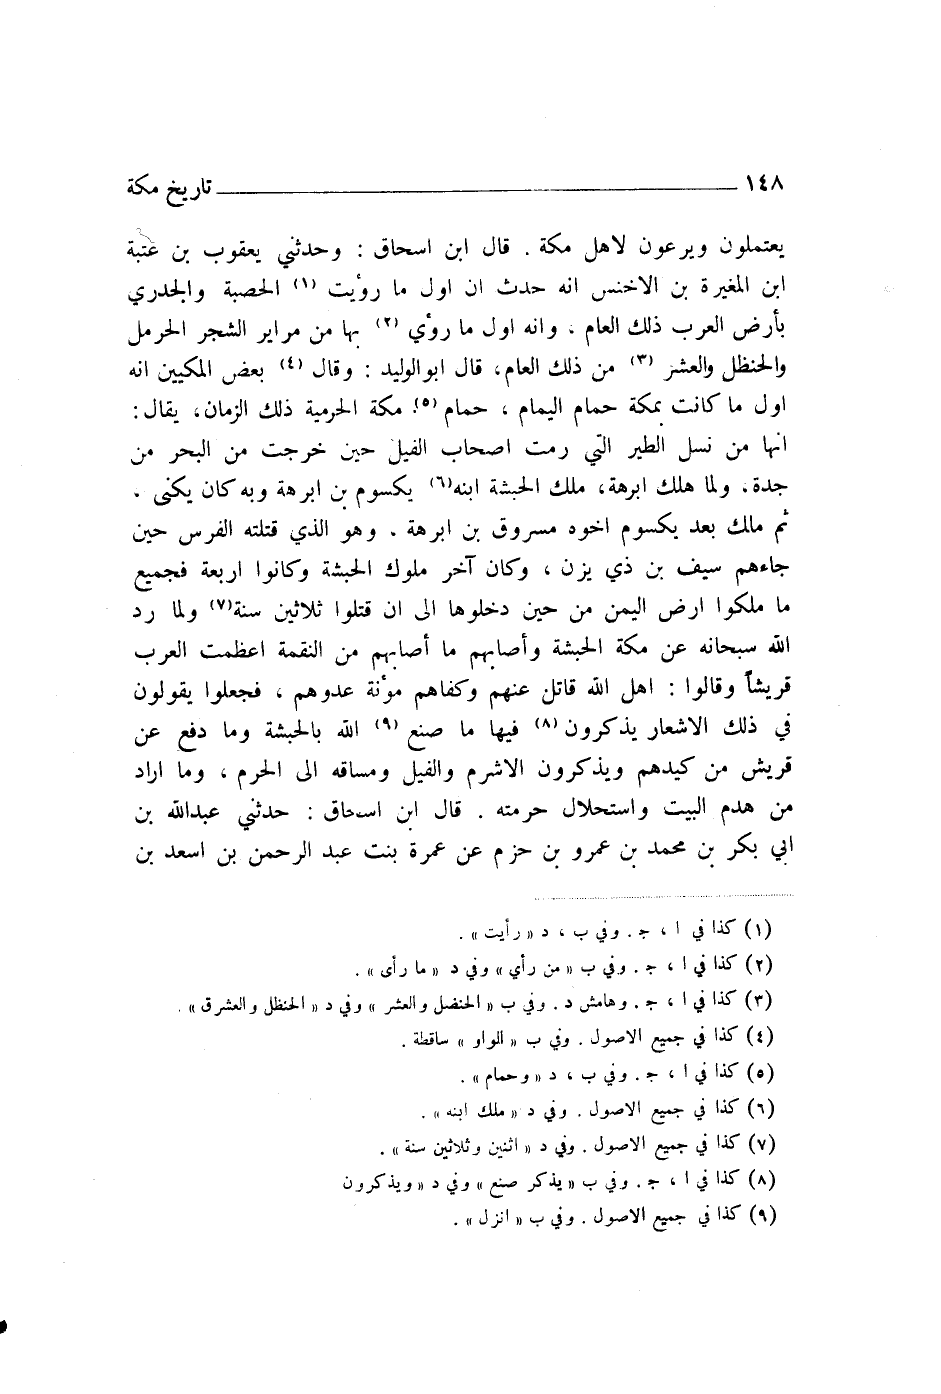 ١٤٨ تاريخ مكة
يعتملون ويرعون لاهل مكة . قال ابن اسحاق : وحدثني يعقوب بن عتبة
ابن المغيرة بن الاخنس انه حدث ان اول ما رؤيت (١) الحصبة والجدري
بأرض العرب ذلك العام ، وانه اول ما رؤي (٢) بها من مراير الشجر الحرمل
والحنظل والعشر (٣) من ذلك العام، قال ابو الوليد : وقال (٤) بعض المكيين انه
اول ما كانت بمكة حمام اليمام ، حمام (٥) مكة الحرمية ذلك الزمان، يقال :
انها من نسل الطير التي رمت اصحاب الفيل حين خرجت من البحر من
جدة. ولما هلك ابرهة، ملك الحبشة ابنه(٦) يكسوم بن ابرهة وبه كان يكنى .
ثم مالك بعد يكسوم اخوه مسروق بن ابرهة . وهو الذي قتلته الفرس حين
جاءهم سيف بن ذي يزن ، وكان آخر ملوك الحبشة وكانوا اربعة فجميع
ما ملكوا ارض اليمن من حين دخلوها الى ان قتلوا ثلاثين سنة(٧) ولما رد
الله سبحانه عن مكة الحبشة وأصابهم ما أصابهم من النقمة اعظمت العرب
قريشاً وقالوا : اهل الله قاتل عنهم وكفاهم مؤنة عدوهم ، فجعلوا يقولون
في ذلك الاشعار يذكرون (٨) فيها ما صنع (٩) الله بالحبشة وما دفع عن
قريش من كيدهم ويذكرون الاشرم والفيل ومساقه الى الحرم ، وما اراد
من هدم البيت واستحلال حرمته . قال ابن اسحاق : حدثني عبدالله بن
ابي بكر بن محمد بن عمرو بن حزم عن عمرة بنت عبد الرحمن بن اسعد بن
(١) كذا في ا ، ج . وفي ب ، د « رأيت » .
(٢) كذا في ا ، ج . وفي ب « من رأي » وفي د « ما رأى » .
(٣) كذا في ا ، ج . وهامش د . وفي ب « الحنضل والعشر » وفي د « الحنظل والعشرق » .
(٤) كذا في جميع الاصول . وفي ب « الواو » ساقطة .
(٥) كذا في ا ، ج . وفي ب ، د « وحمام » .
(٦) كذا في جميع الاصول . وفي د « ملك ابنه » .
(٧) كذا في جميع الاصول . وفي د « اثنين وثلاثين سنة » .
(٨) كذا في ا ، ج . وفي ب « يذكر صنع » وفي د « ويذكرون
(٩) كذا في جميع الاصول . وفي ب « انزل » .